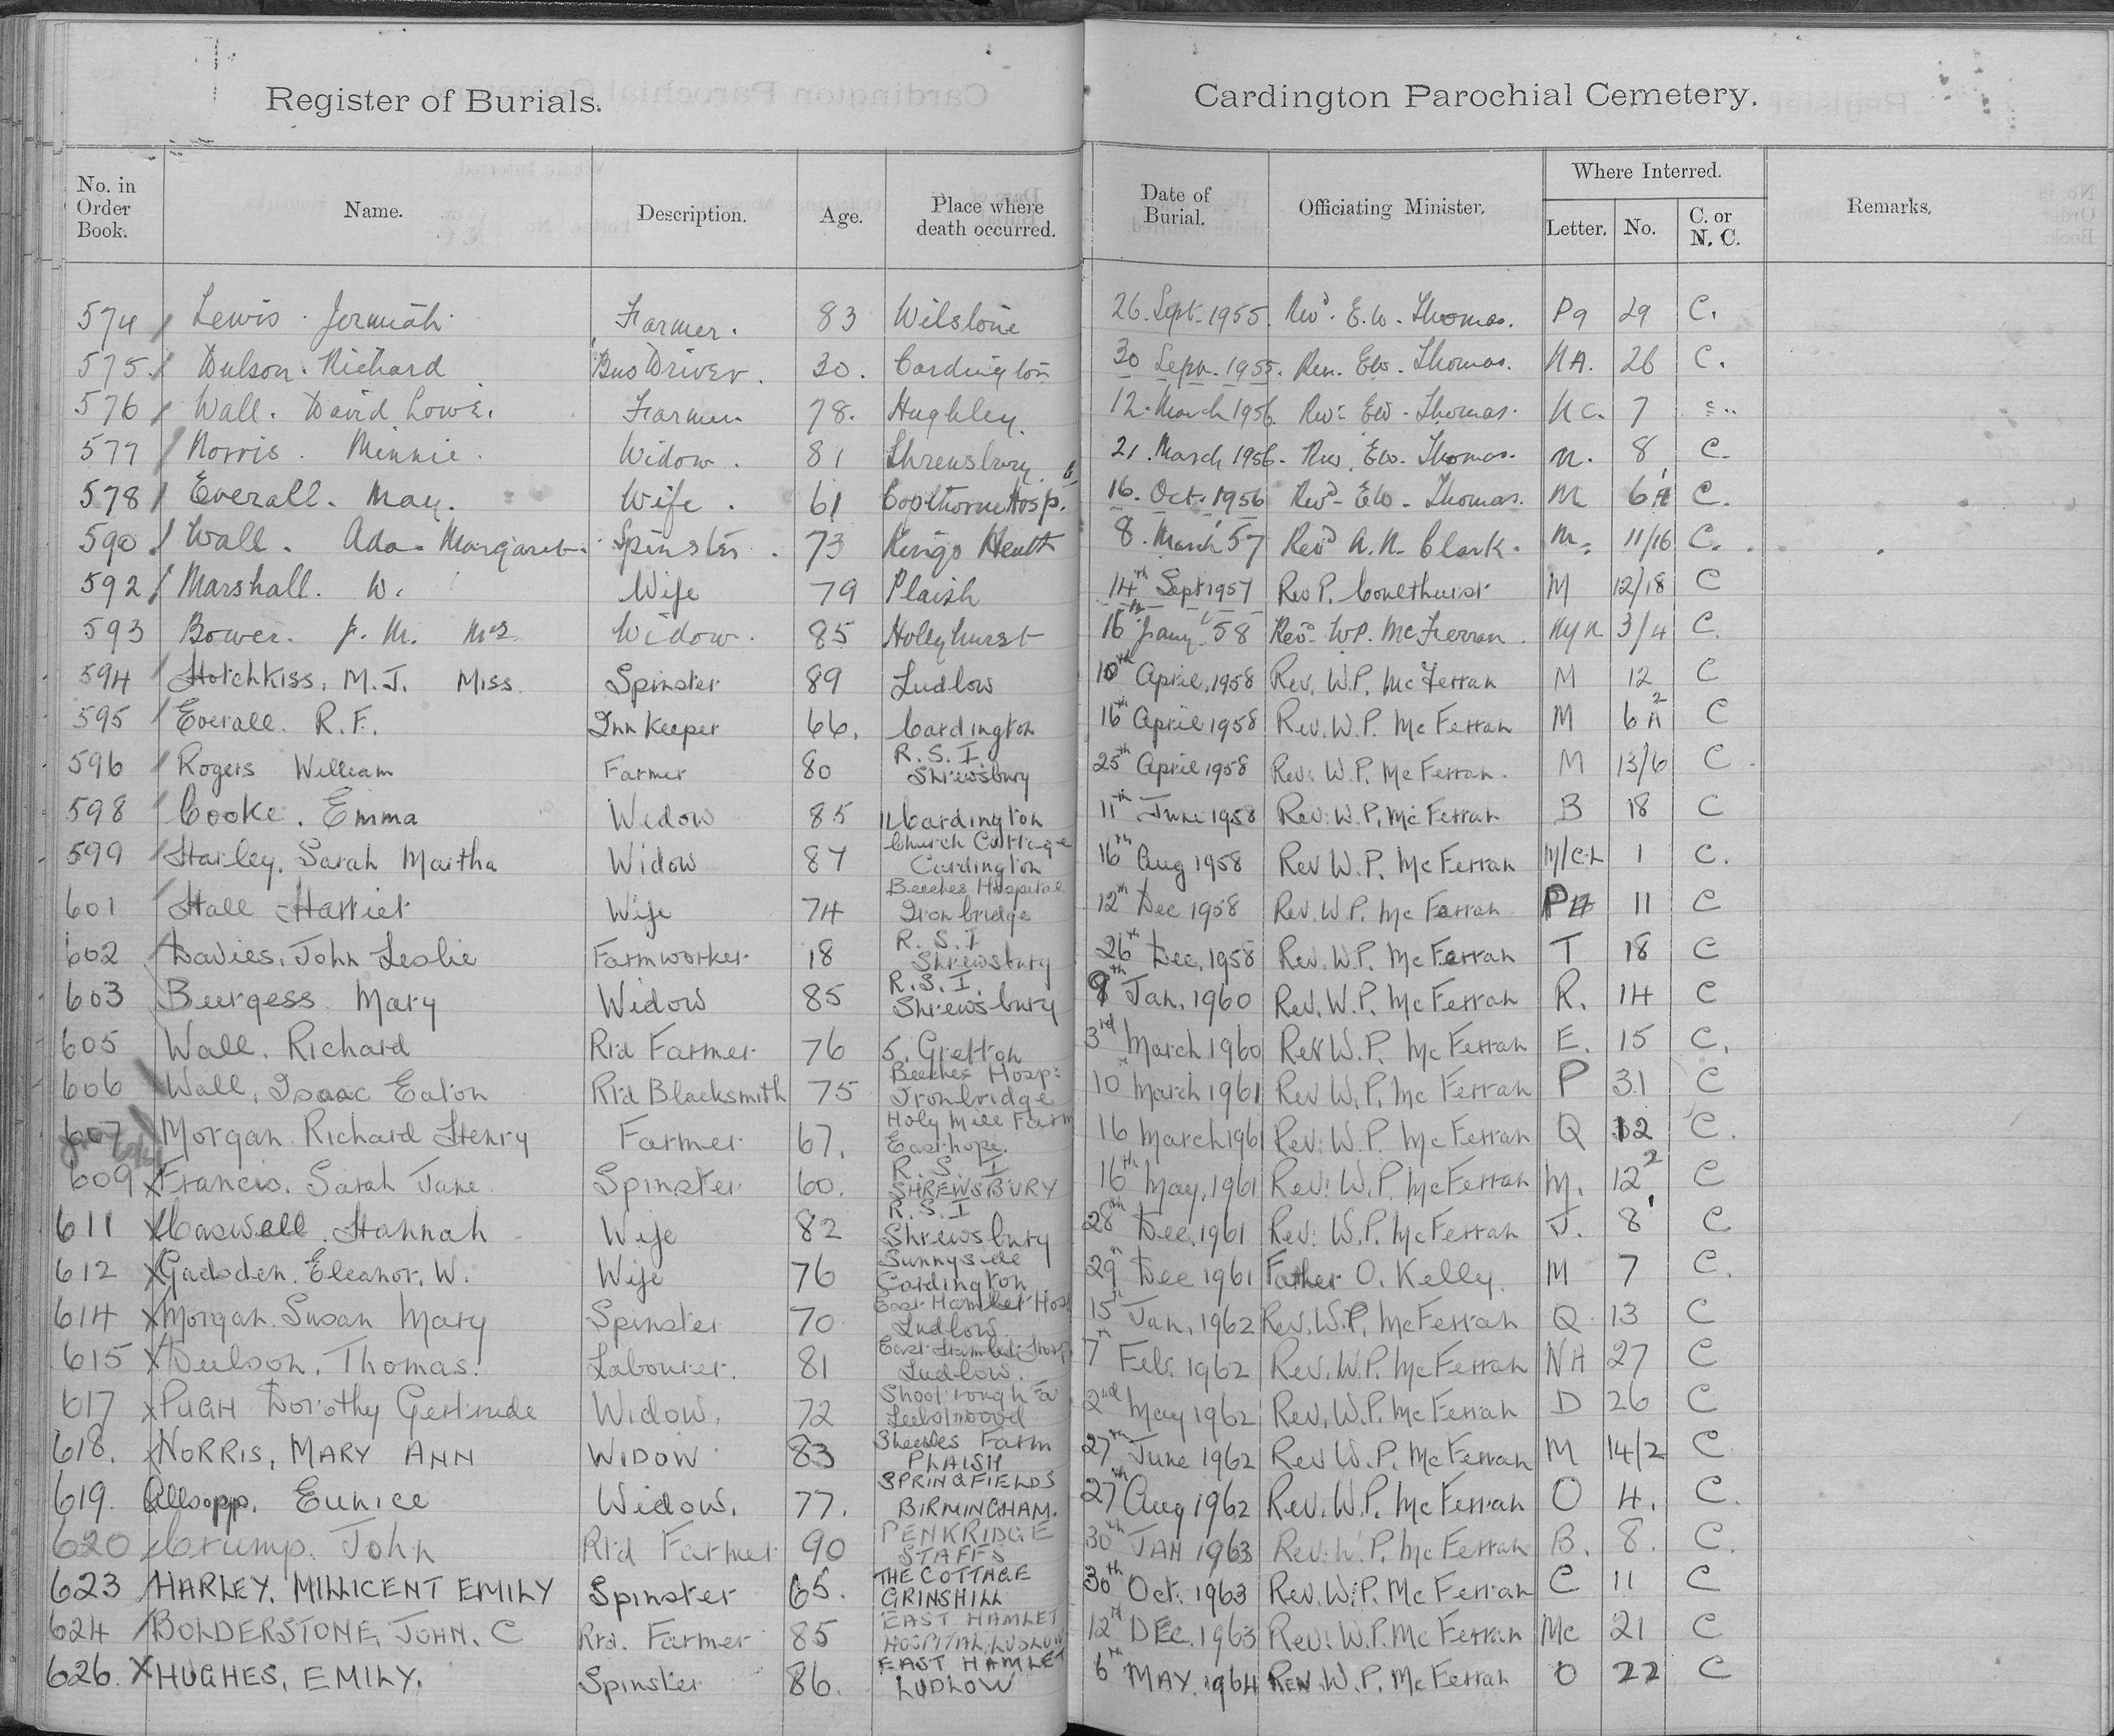 Register of Burials.
Cardington Parochial Cemetery.
No. in Order Book. Name. Description. Age. Place where death occurred. Date of Burial. Officiating Minister. Where Interred. Letter. No. C. or N. C. Remarks.
574 Lewis Jermiah Farmer. 83 Wilstone 26. Sept. 1955. Revd. E.W. Thomas. P9 29 C.
575. Dulson. Richard Bus Driver. 30. Cardington 30 Sept. 1955. Rev. EW. Thomas. NA. 26 C.
576 Wall. David Lowe. Farmer 78. Hughley. 12. March 1956 Rev: EW. Thomas. NC. 7
577 Norris. Minnie. Widow. 81 Shrewsbury 21. March 1956. Rev. EW. Thomas. N. 8 C.
578 Everall. May. Wife. 61 Copthorne Hosp. 16. Oct. 1956 Revd. EW. Thomas. M 6A C.
590. Wall. Ada. Margaret. Spinster. 73 Kings Heath 8. March 57 Revd A.N. Clark. M. 11/16 C.
592 Marshall. W. Wife 79 Plaish 14th Sept 1957 Rev P. Coulthurst M 12/18 C
593 Bower. J. M. Mrs Widow. 85 Hollyhurst 16th Jany. 58 Revd. W.P. McFerran. 3/4 C.
594 Hotchkiss, M.J. Miss. Spinster 89 Ludlow 10th April, 1958 Rev. W.P. McFerran M 12 C
595 Everall. R.F. Inn Keeper 66. Cardington 16th April 1958 Rev. W.P. McFerran M 6A2 C
596 Rogers William Farmer 80 R.S.I. Shrewsbury 25th April 1958 Rev: W.P. McFerran. M 13/6 C.
598 Cooke. Emma Widow 85 11 Cardington 11th June 1958 Rev: W.P. McFerran B 18 C
599 Harley, Sarah Martha Widow 87 Church Cottage Cardington 16th Aug 1958 Rev W.P. McFerran M/C.L 1 C.
601 Hall Harriet Wife 74 Beeches Hospital Ironbridge 12th Dec 1958 Rev. W.P. McFerran PH 11 C
602 Davies, John Leslie Farmworker 18 R.S.I Shrewsbury 26th Dec. 1958 Rev. W.P. McFerran T 18 C
603 Burgess Mary Widow 85 R.S.I. Shrewsbury 9th Jan. 1960 Rev. W.P. McFerran R. 14 C
605 Wall, Richard Rtd Farmer 76 5, Gretton 3rd March 1960 Rev W.P. McFerran E. 15 C.
606 Wall, Isaac Eaton Rtd Blacksmith 75 Beeches Hosp: Ironbridge 10th March 1961 Rev W.P. McFerran P 31 C
607 Morgan Richard Henry Farmer 67. Holy Mill Farm Easthope. 16 March 1961 Rev: W.P. McFerran Q 12 C.
609 Francis. Sarah Jane. Spinster 60. R.S.I SHREWSBURY 16th May, 1961 Rev: W.P. McFerran M. 12 2 C
611 Caswell, Hannah Wife 82 R.S.I Shrewsbury 28th Dec. 1961 Rev: W.P. McFerran J. 8 1 C
612 Gadsden, Eleanor, W. Wife 76 Sunnyside Cardington 29th Dec 1961 Father O. Kelly. M 7 C.
614 Morgan Susan Mary Spinster 70 East Hamlet Hos Ludlow 15th Jan. 1962 Rev. W.P. McFerran Q 13 C
615 Dulson, Thomas. Labourer. 81 East Hamlet Hosp Ludlow. 7th Feb. 1962 Rev. W.P. McFerran NH 27 C
617 PUGH Dorothy Gertrude Widow. 72 Shootrough Fa Leebotwood 2nd May 1962 Rev. W.P. McFerran D 26 C
618. NORRIS, MARY ANN WIDOW 83 Farm PLAISH 27th June 1962 Rev W.P. McFerran M 14/2 C
619. Allsopp. Eunice Widow. 77. SPRINGFIELDS BIRMINGHAM. 27th Aug 1962 Rev. W.P. McFerran O 4. C.
620 Crump. John Rtd Farmer 90 PENKRIDGE STAFFS 30th JAN 1963 Rev: W.P. McFerran B. 8. C.
623 HARLEY. MILLICENT EMILY Spinster 65. THE COTTAGE GRINSHILL 30th Oct. 1963 Rev. W.P. McFerran C 11 C
624 BOLDERSTONE, JOHN. C Rtd. Farmer 85 EAST HAMLET HOSPITAL, LUDLOW 12th DEC. 1963 Rev: W.P. McFerran Mc 21 C
626. X HUGHES, EMILY. Spinster 86. EAST HAMLET LUDLOW 6th MAY. 1964 REV. W.P. McFerran O 22 C